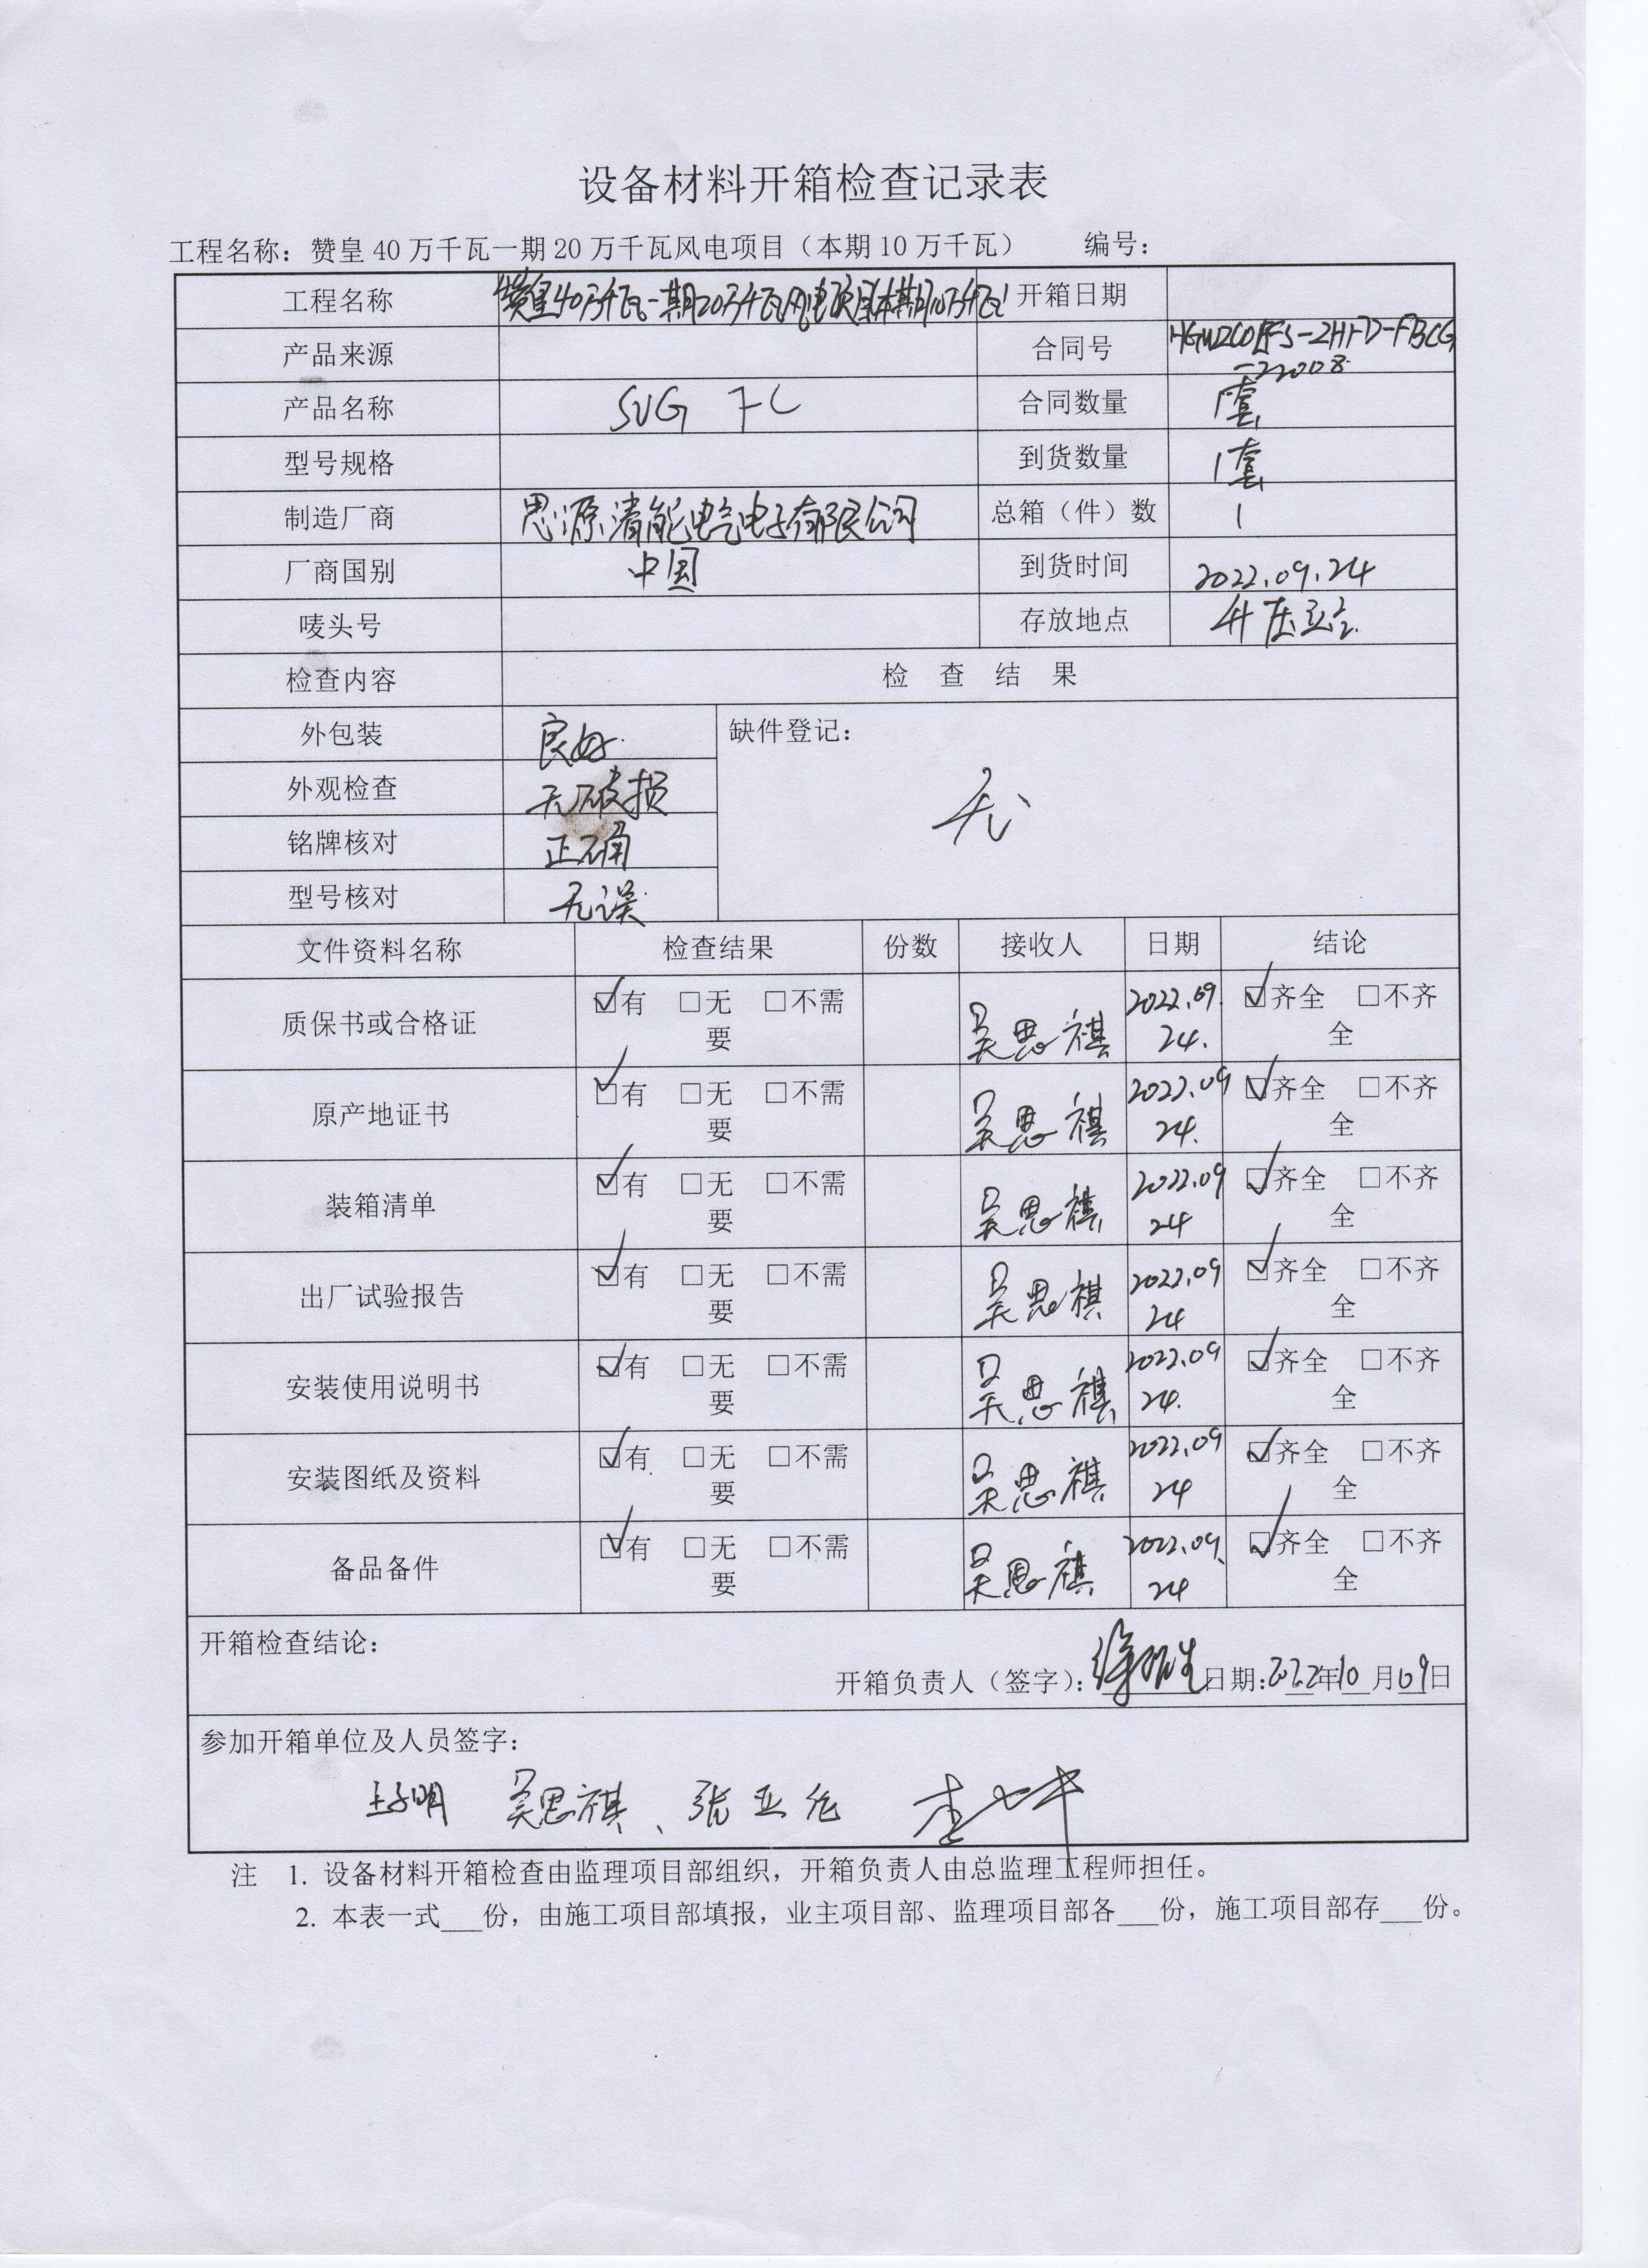 设备材料开箱检查记录表
工程名称：赞皇 40 万千瓦一期 20 万千瓦风电项目（本期 10 万千瓦） 编号：
工程名称 赞皇40万千瓦一期20万千瓦风电项目(本期10万千瓦) 开箱日期
产品来源 合同号
-22008
产品名称 SVG FC 合同数量 1套
型号规格 到货数量 1套
制造厂商 思源清能电气电子有限公司 总箱（件）数 1
厂商国别 中国 到货时间 2022.09.24
唛头号 存放地点 升压站
检查内容 检 查 结 果
外包装 良好 缺件登记：
外观检查 无破损 无
铭牌核对 正确
型号核对 无误
文件资料名称 检查结果 份数 接收人 日期 结论
质保书或合格证 ☑有 □无 □不需要 吴思祺 2022.09.24. ☑齐全 □不齐全
原产地证书 ☑有 □无 □不需要 吴思祺 2022.09 24. ☑齐全 □不齐全
装箱清单 ☑有 □无 □不需要 吴思祺 2022.09 24 ☑齐全 □不齐全
出厂试验报告 ☑有 □无 □不需要 吴思祺 2022.09 24 ☑齐全 □不齐全
安装使用说明书 ☑有 □无 □不需要 吴思祺 2022.09 24. ☑齐全 □不齐全
安装图纸及资料 ☑有 □无 □不需要 吴思祺 2022.09 24 ☑齐全 □不齐全
备品备件 ☑有 □无 □不需要 吴思祺 2022.09. 24 ☑齐全 □不齐全
开箱检查结论：
开箱负责人（签字）： 日期：2022年10月09日
参加开箱单位及人员签字：
吴思祺、张亚伦
注 1. 设备材料开箱检查由监理项目部组织，开箱负责人由总监理工程师担任。
2. 本表一式___份，由施工项目部填报，业主项目部、监理项目部各___份，施工项目部存___份。